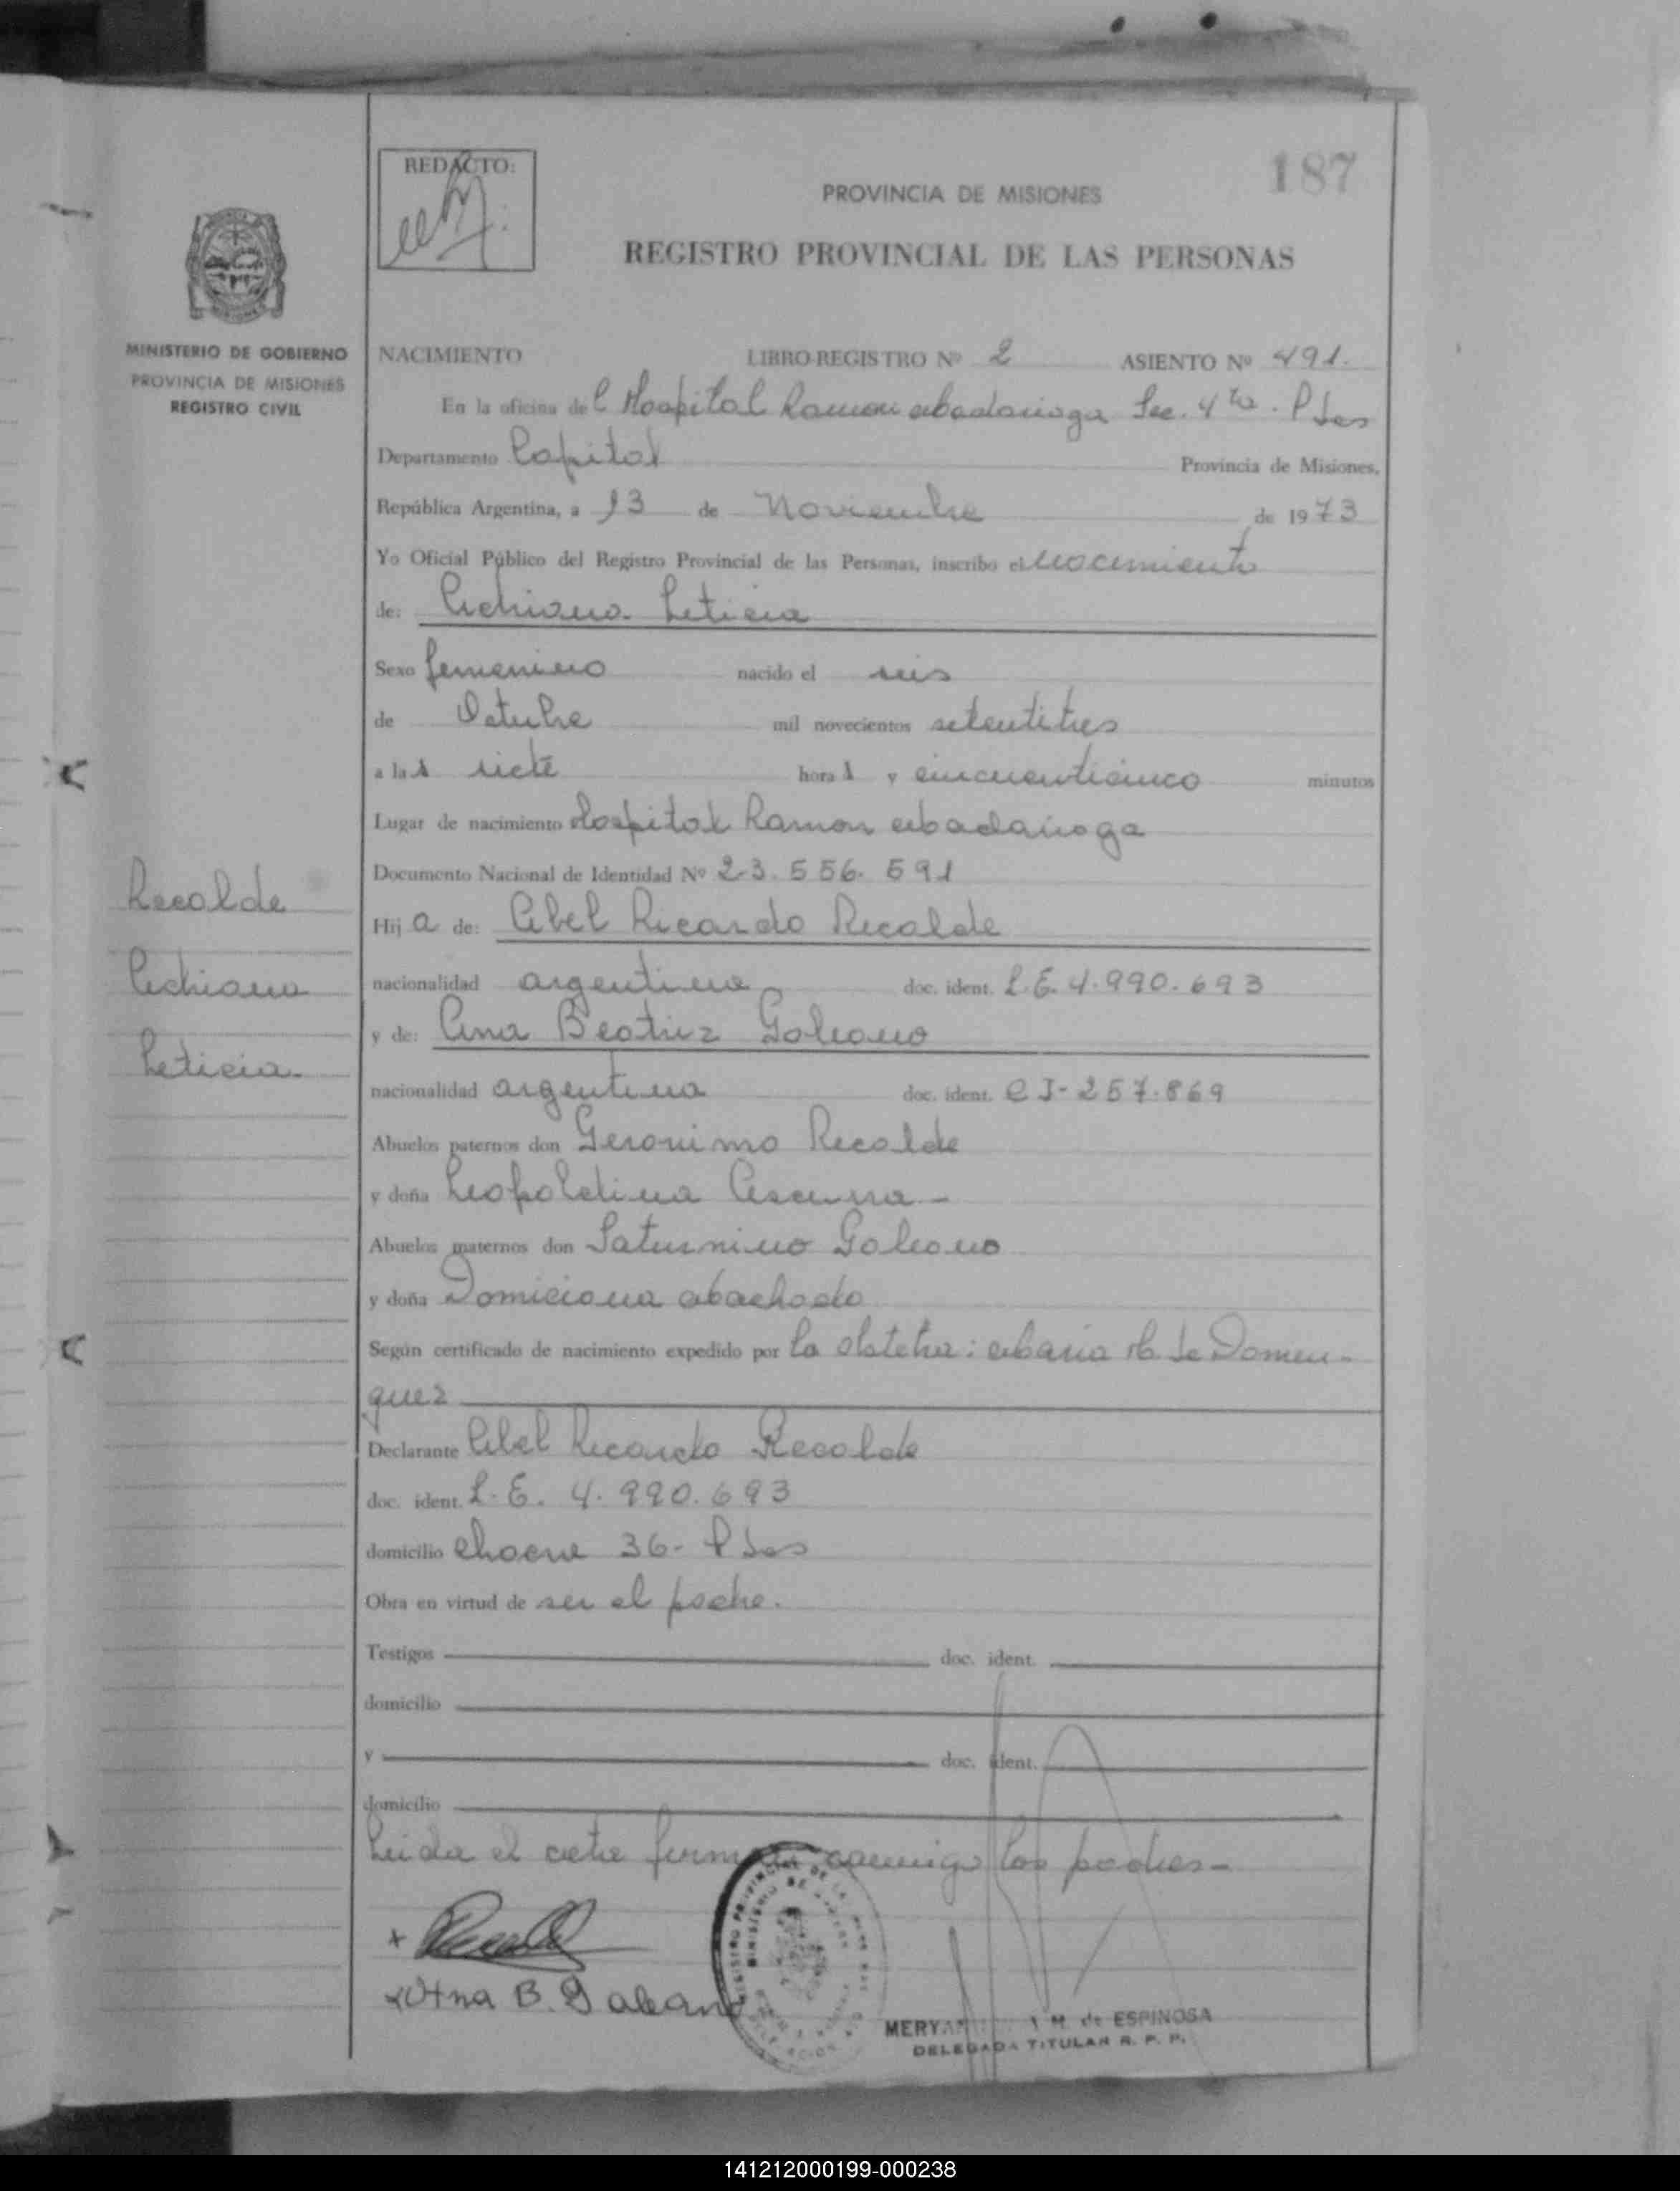 187
REDACTO:
PROVINCIA DE MISIONES
REGISTRO PROVINCIAL DE LAS PERSONAS
MINISTERIO DE GOBIERNO
PROVINCIA DE MISIONES
REGISTRO CIVIL
NACIMIENTO LIBRO-REGISTRO Nº 2 ASIENTO Nº 491.
En la oficina del Hospital Ramon Madariaga Sec. 4ta. Pdas
Departamento Capital Provincia de Misiones,
República Argentina, a 13 de Noviembre de 1973
Yo Oficial Público del Registro Provincial de las Personas, inscribo el nacimiento
de: Adriana Leticia
Sexo femenino nacido el seis
de Octubre mil novecientos setentitres
a las siete horas y cincuenticinco minutos
Lugar de nacimiento Hospital Ramon Madariaga
Documento Nacional de Identidad Nº 23.556.591
Recalde
Adriana
Leticia.
Hija de: Abel Ricardo Recalde
nacionalidad argentina doc. ident. L.E. 4.990.693
y de: Ana Beatriz Galeano
nacionalidad argentina doc. ident. CI-257.869
Abuelos paternos don Geronimo Recalde
y doña Leopoldina Ascurra-
Abuelos maternos don Saturnino Galeano
y doña Domiciana Machado
Según certificado de nacimiento expedido por la obstetra: Maria M. de Domin-
guez
Declarante Abel Ricardo Recalde
doc. ident. L.E. 4.990.693
domicilio 36- Pdas
Obra en virtud de ser el padre.
Testigos doc. ident.
domicilio
y doc. ident.
domicilio
Leida el acta firman conmigo los padres-
Ana B. Galeano
M. de ESPINOSA
DELEGADA TITULAR R. P. P.
141212000199-000238